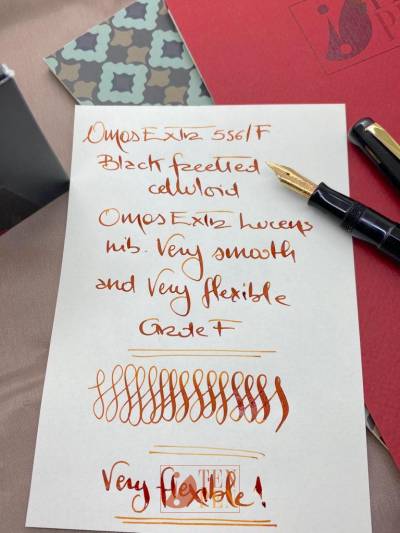 Omas Extra 556/F
Black facetted
celluloid
Omas Extra Lucens
nib. Very smooth
and Very flexible
Grade F
Very flexible!
TEN
PEN